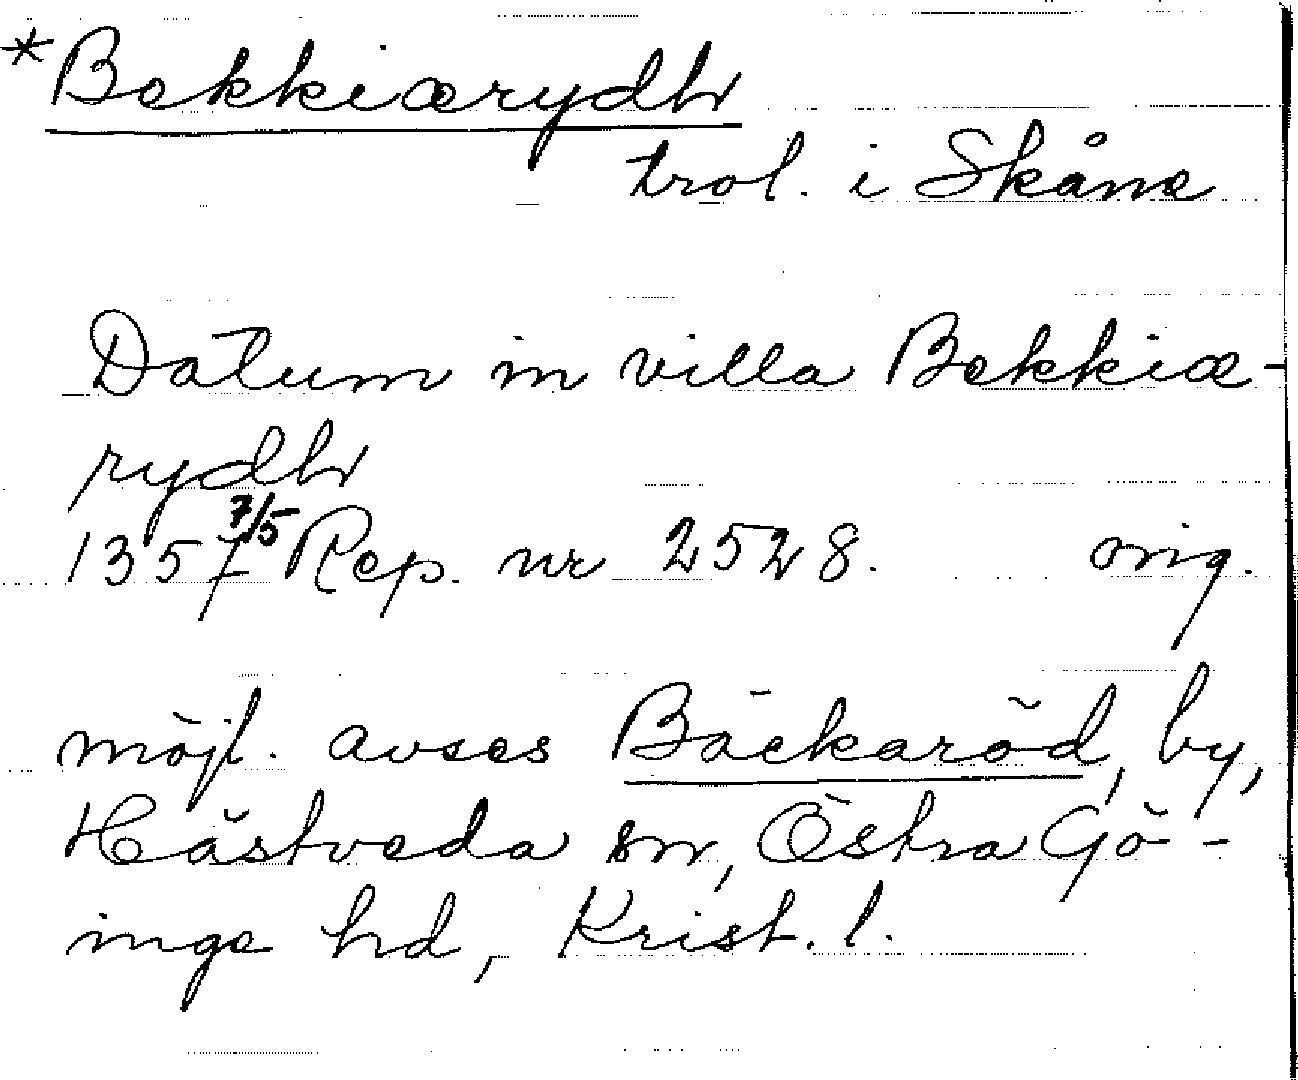 *Bekkiærydh
trol. i Skåne
Datum in villa Bekkiæ-
rydh
1357 7/5 Rep. nr 2528. orig.
möjl. avses Bäckaröd, by,
Hästveda sn, Östra Gö-
inge hd, Krist. l.